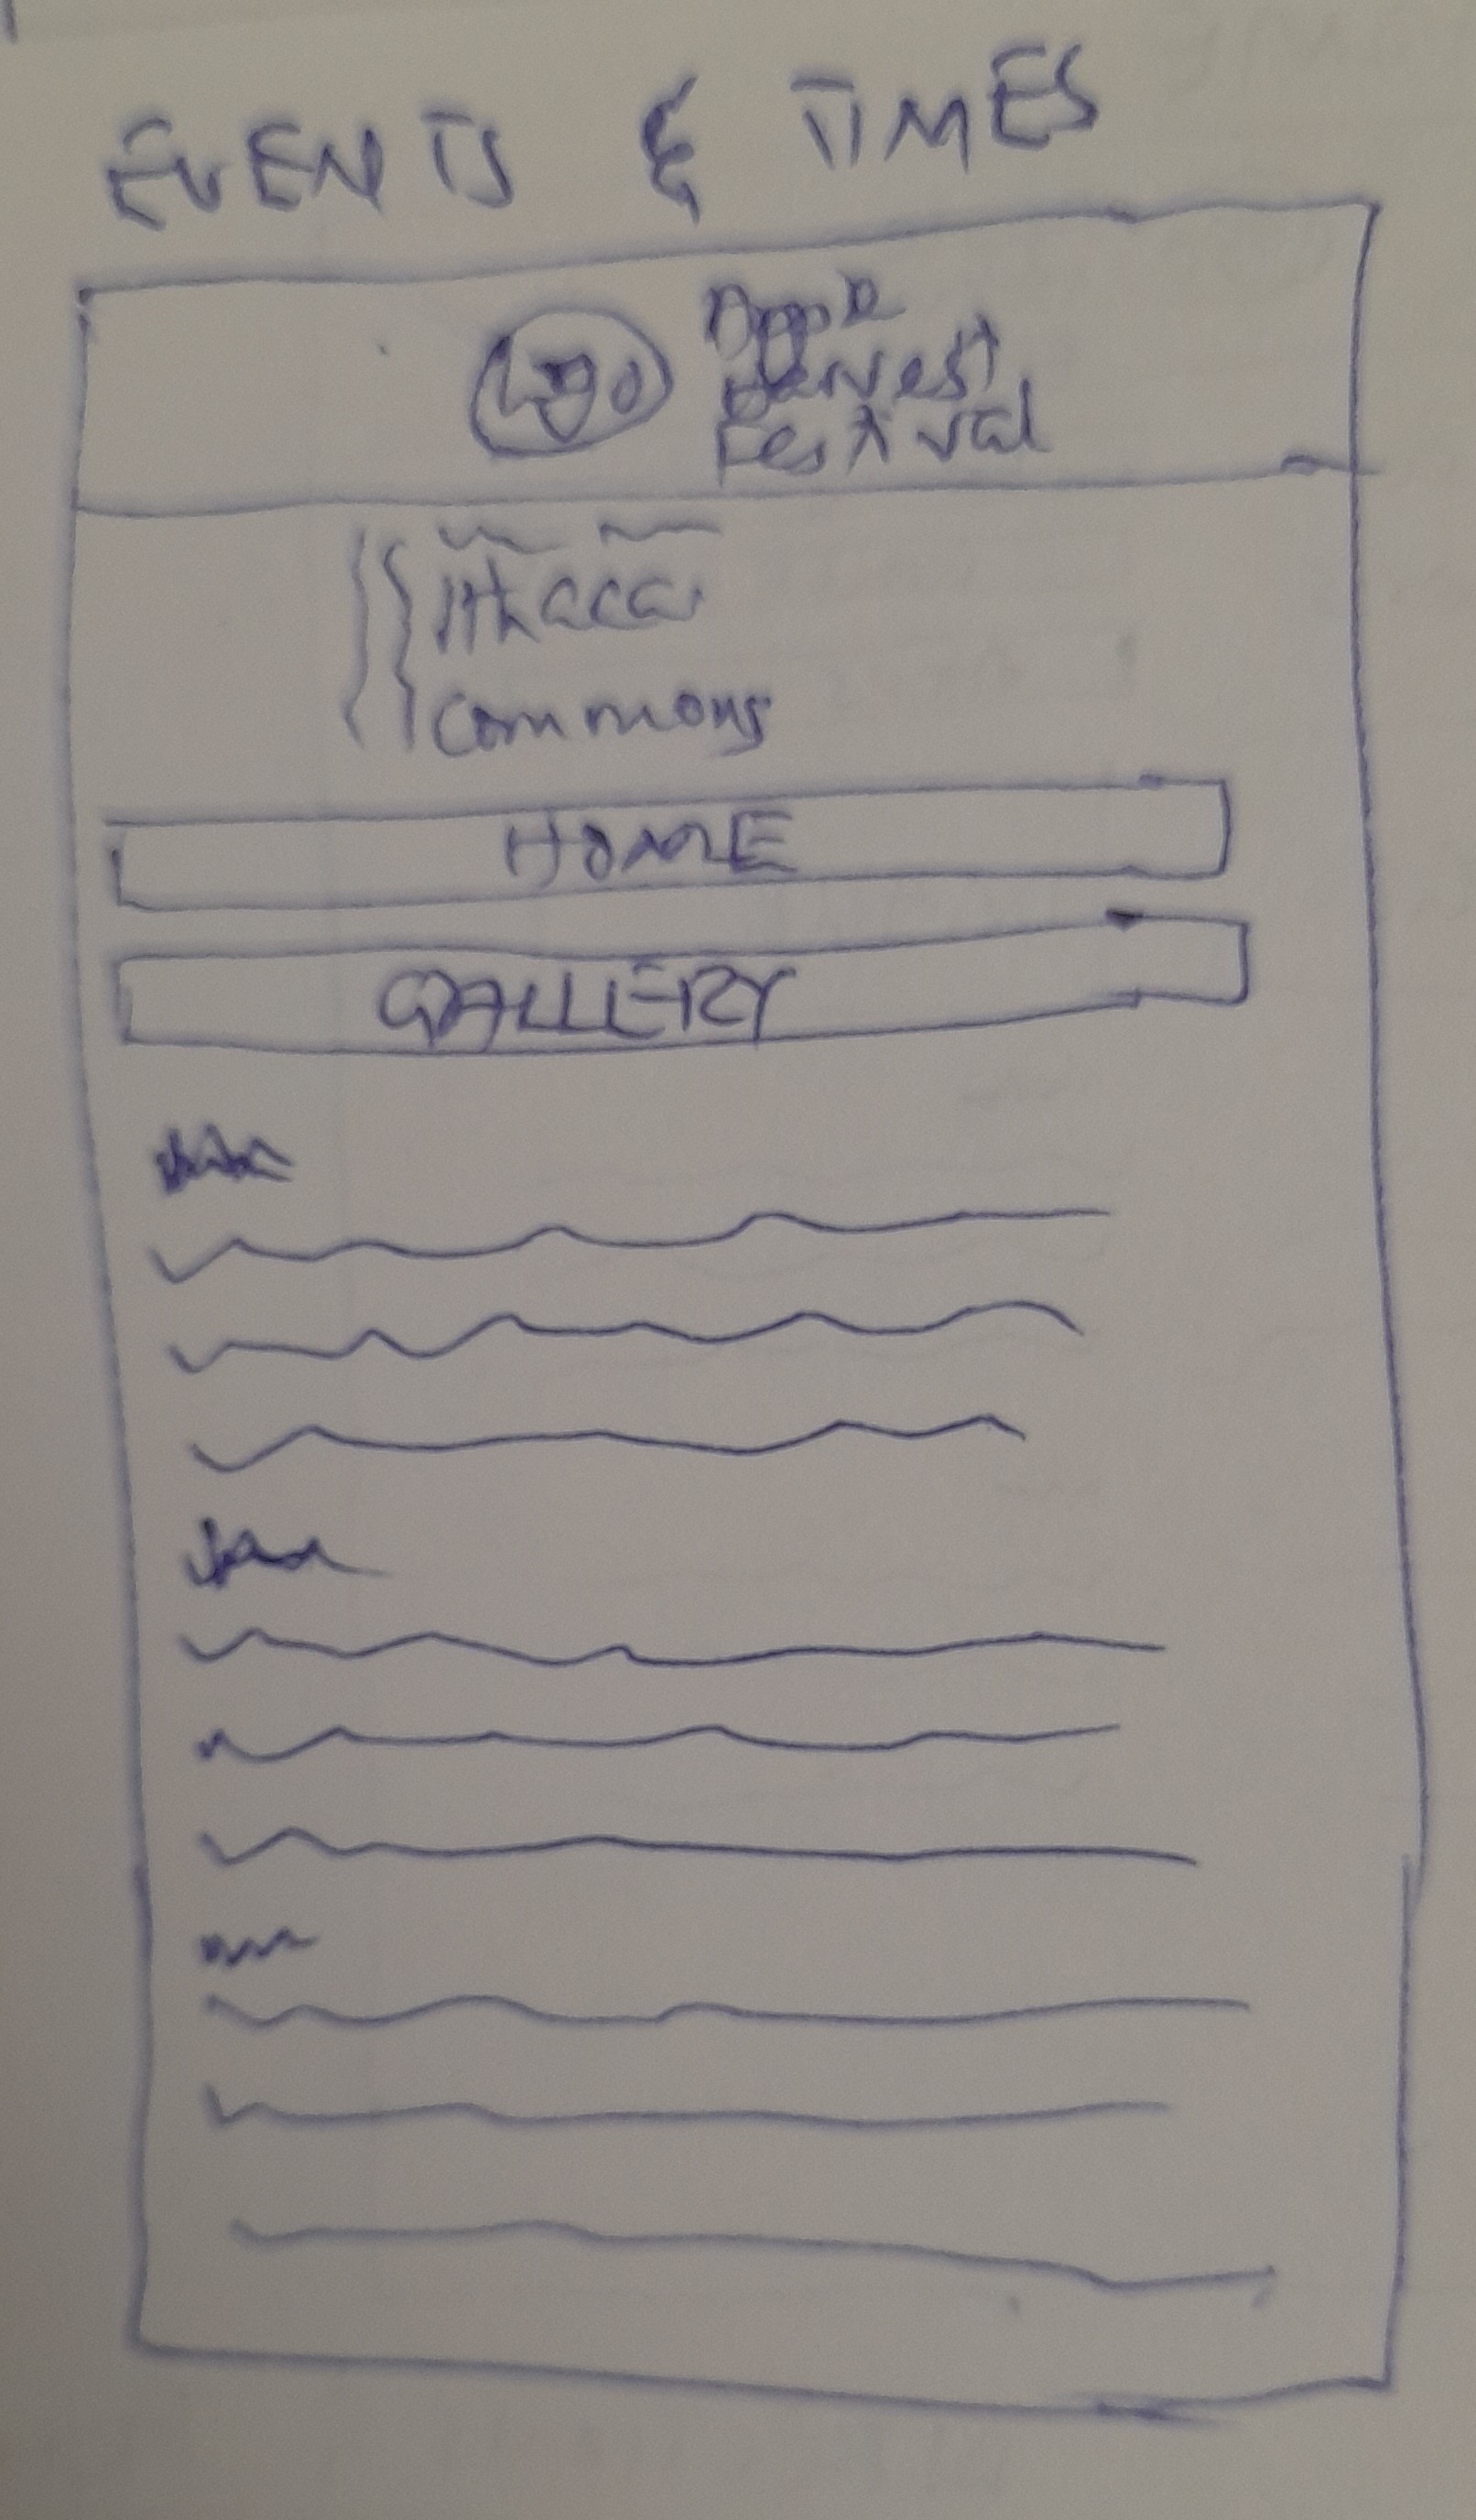 EVENTS & TIMES
Logo
Apple
Harvest
Festival
Ithaca
Commons
HOME
GALLERY